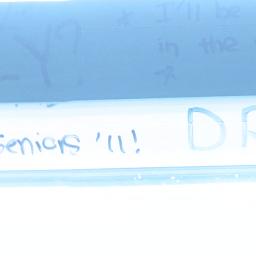 -Y?
* I'll be
in the
-A
Seniors '11!
DR